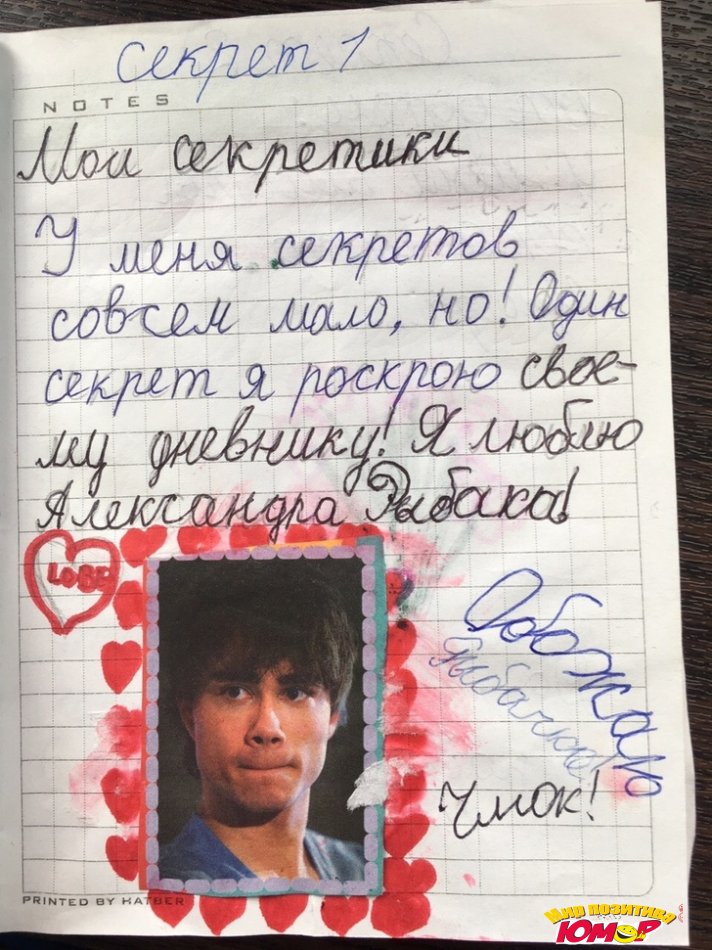 Секрет 1
NOTES
Мои секретики
У меня секретов
совсем мало, но! Один
секрет я роскрою свое-
му дневнику! Я люблю
Александра Рыбака!
LOBE
Обожаю
Чмок!
PRINTED BY KATBER
Мир позитива
ЮМОР